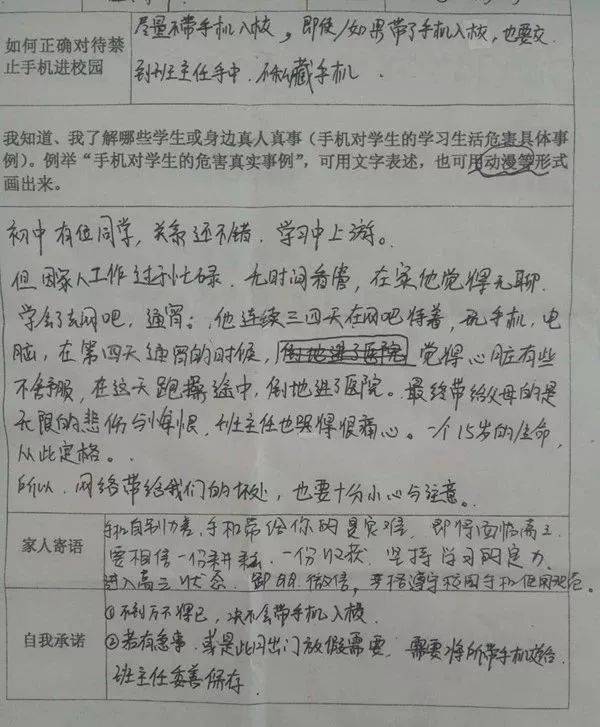 如何正确对待禁
止手机进校园
尽量不带手机入校，即使/如果带了手机入校，也要交
到班主任手中，不私藏手机.
我知道、我了解哪些学生或身边真人真事（手机对学生的学习生活危害具体事
例）。例举“手机对学生的危害真实事例”，可用文字表述，也可用动漫等形式
画出来。
初中有位同学，关系还不错.学习中上游。
但因家人工作过于忙碌.无时间看管，在家他觉得无聊.
学会了去网吧，通宵；他连续三四天在网吧待着，玩手机，电
脑，在第四天通宵的时候，倒地进了医院 觉得心脏有些
不舒服，在这天跑操途中，倒地进了医院。最终带给父母的是
无限的悲伤与悔恨.班主任也哭得很痛心。一个15岁的生命，
从此定格。
所以.网络带给我们的坏处，也要十分小心与注意。
家人寄语
手机自制力差，手机带给你的是灾难.即将面临高三
要相信一份耕耘.一份收获.坚持学习的定力.
进入高三状态.卸QQ.微信，严格遵守校园手机使用规范。
自我承诺
①不到万不得已，决不会带手机入校.
②若有急事.或是出门放假需要.需要将所带手机送给
班主任妥善保存.